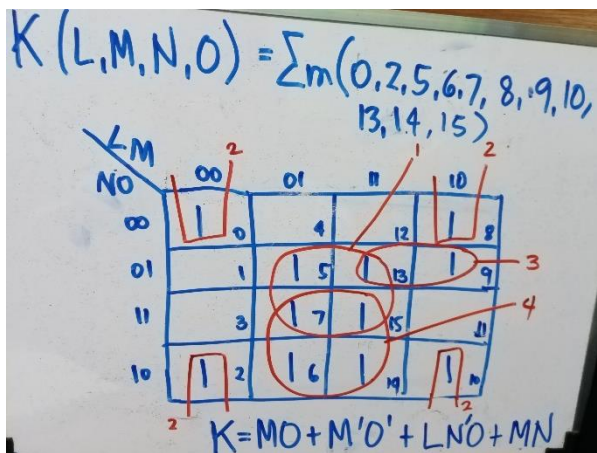 K(L,M,N,O) = Σm(0,2,5,6,7, 8, 9,10,
13,14,15)
LM
NO 00 01 11 10
2 1 2
00 1 0 4 12 1 8
01 1 1 5 1 13 1 9 3
11 3 1 7 1 15 11 4
10 1 2 1 6 1 14 1 10
2 2
K=MO+M'O'+LN'O+MN